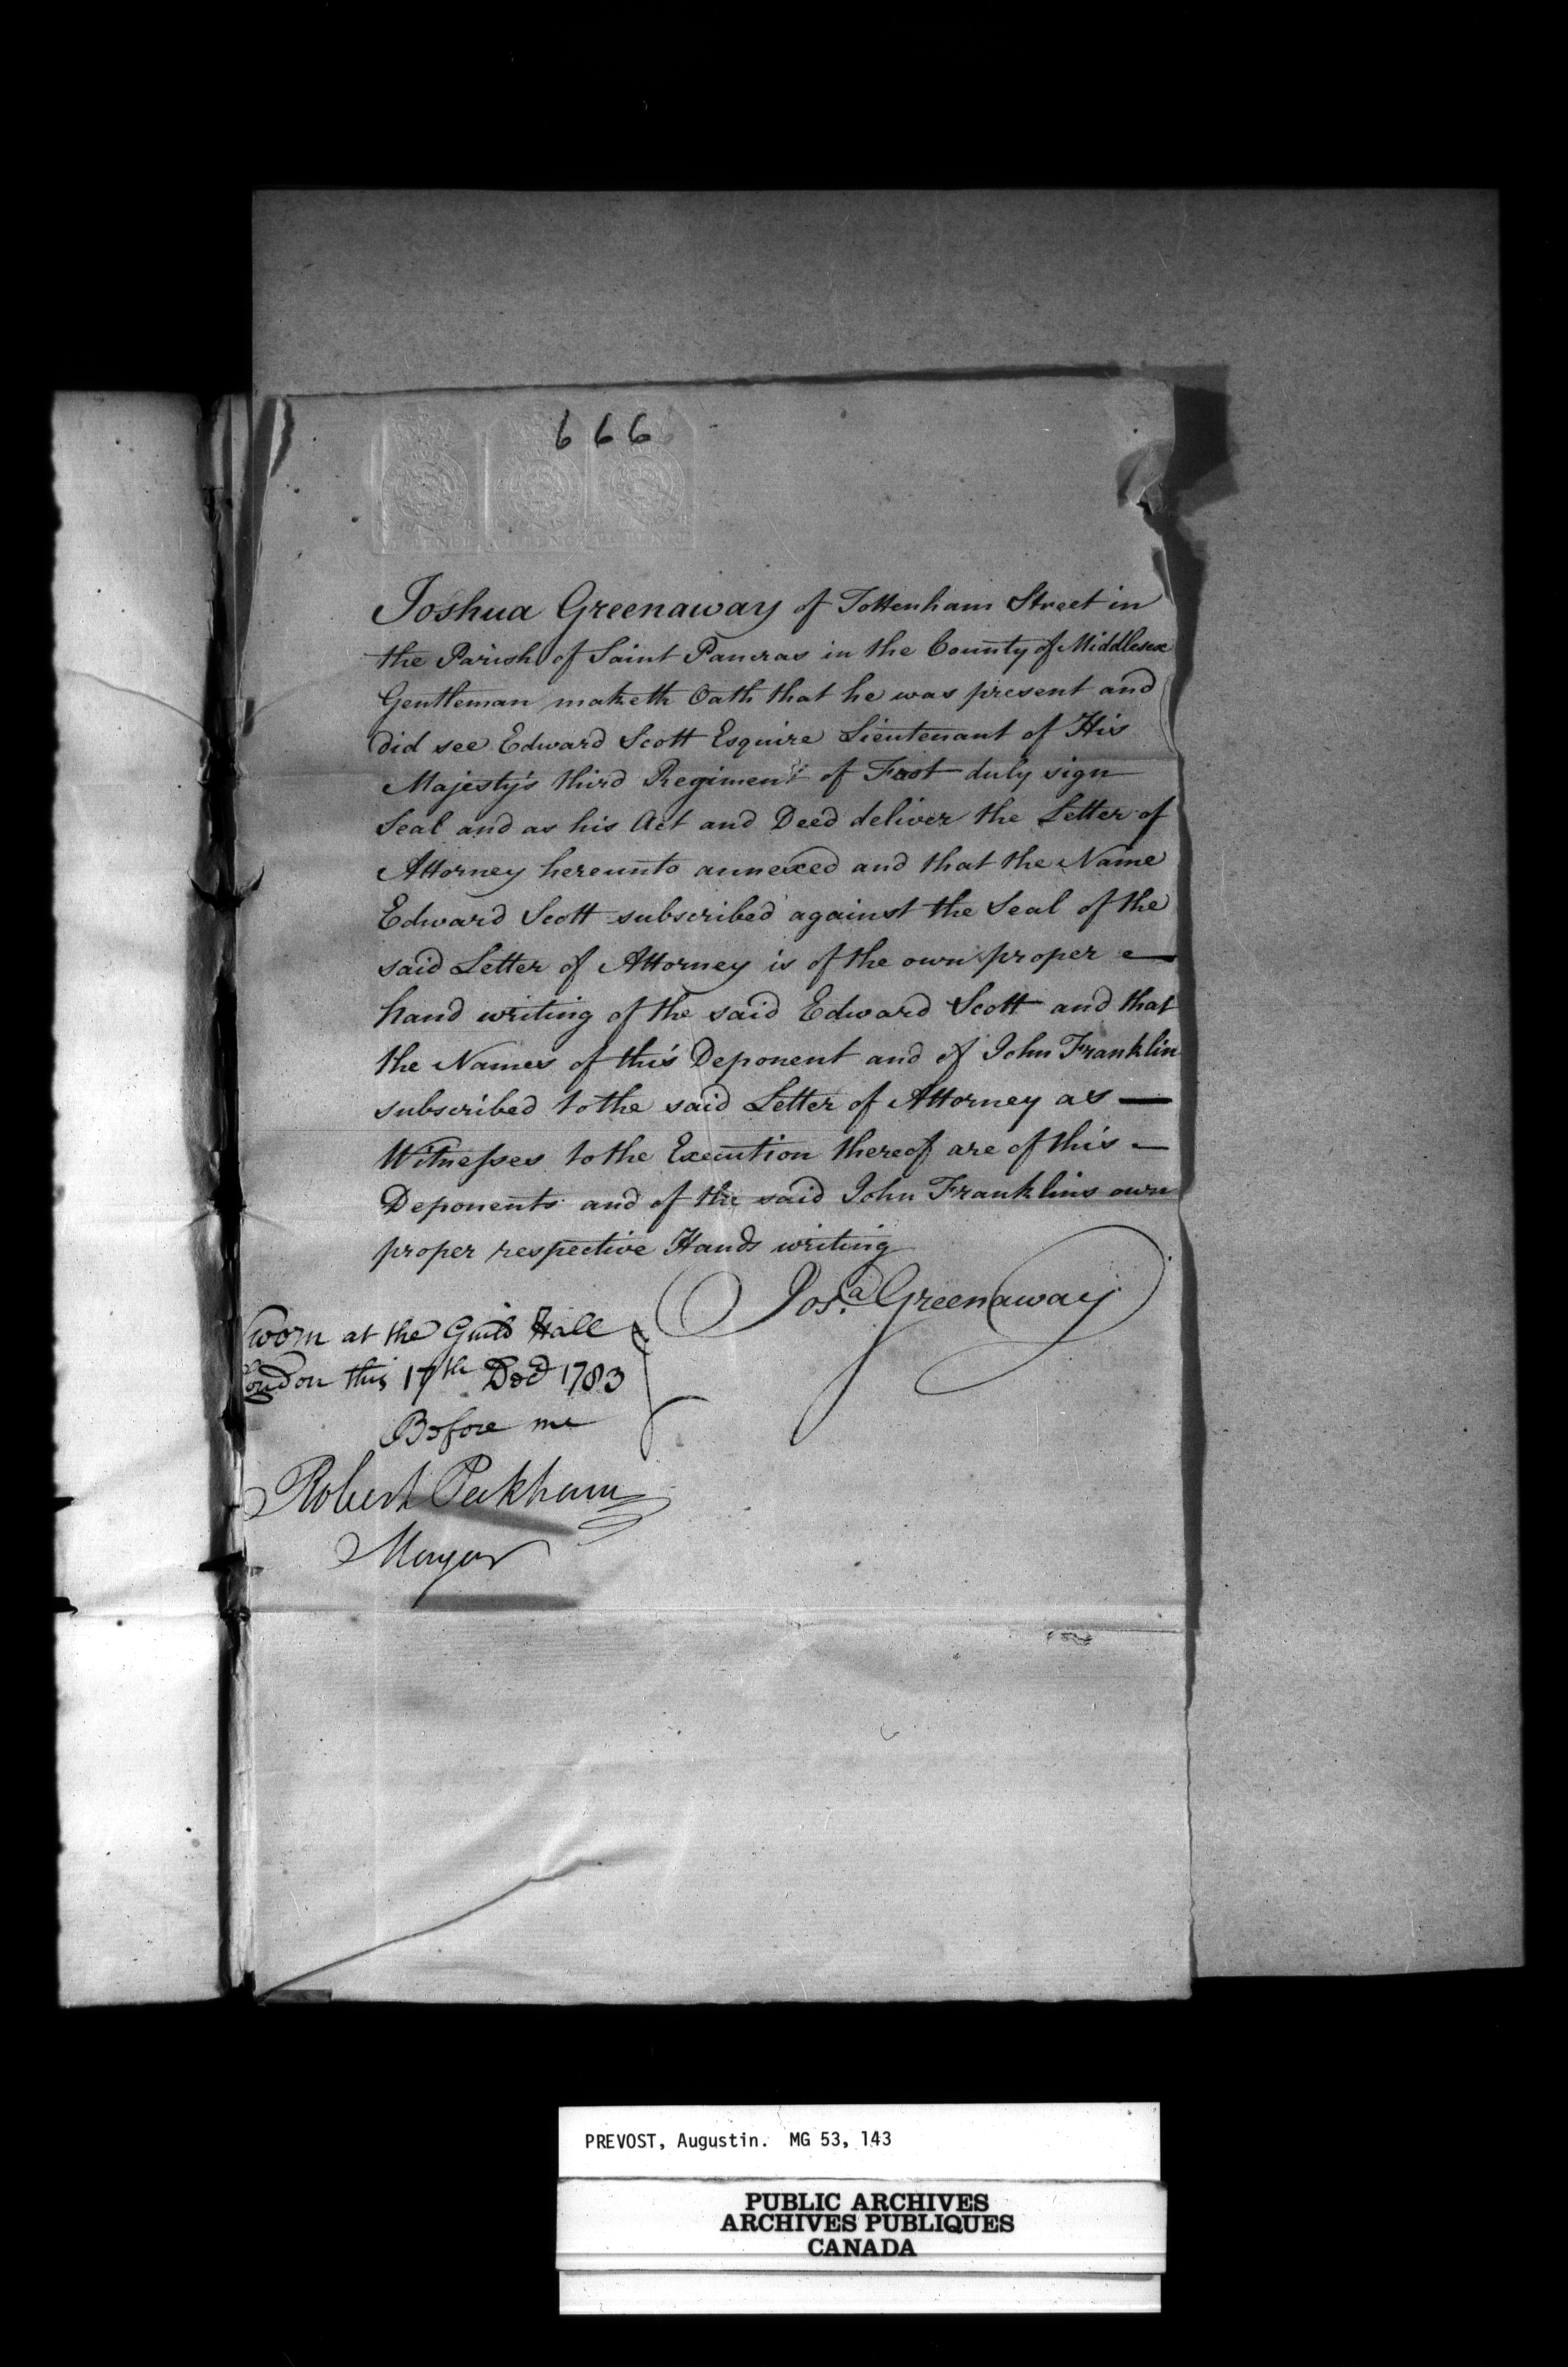 6 6 6
Joshua Greenaway of Tottenham Street in
the Parish of Saint Pancras in the County of Middlesex
Gentleman maketh Oath that he was present and
did see Edward Scott Esquire Lieutenant of His
Majesty's third Regiment of Foot duly sign
Seal and as his Act and Deed deliver the Letter of
Attorney hereunto annexed and that the Name
Edward Scott subscribed against the Seal of the
said Letter of Attorney is of the own proper
hand writing of the said Edward Scott and that
the Names of this Deponent and of John Franklin
subscribed to the said Letter of Attorney as —
Witnesses to the Execution thereof are of this —
Deponents and of the said John Franklins own
proper respective Hands writing
Josa. Greenaway
Sworn at the Guild Hall
London this 17th Decr 1783
Before me
Robert Peckham
Mayor
PREVOST, Augustin. MG 53, 143
PUBLIC ARCHIVES
ARCHIVES PUBLIQUES
CANADA